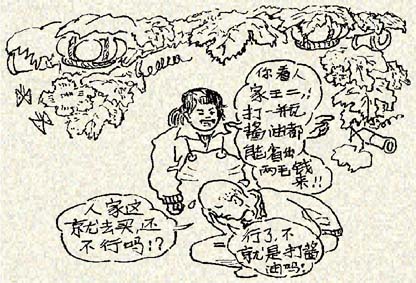 你看人
家王二,
打一瓶
酱油都
能省出
两毛钱
来!!
人家这
就去买,还
不行吗!?
行了,不
就是打酱
油吗!